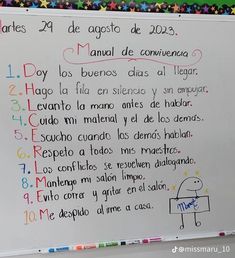 Martes 29 de agosto de 2023.
Manual de convivencia
1. Doy los buenos días al llegar.
2. Hago la fila en silencio y sin empujar.
3. Levanto la mano antes de hablar.
4. Cuido mi material y el de los demás.
5. Escucho cuando los demás hablan.
6. Respeto a todos mis maestros.
7. Los conflictos se resuelven dialogando.
8. Mantengo mi salón limpio.
9. Evito correr y gritar en el salón.
10. Me despido al irme a casa.
@missmaru_10